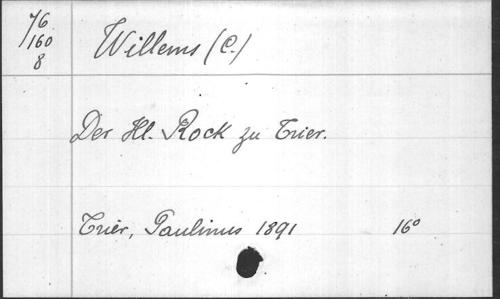 76
/160
8
Willems (C.)
Der Hl. Rock zu Trier.
Trier, Paulinus 1891 16°